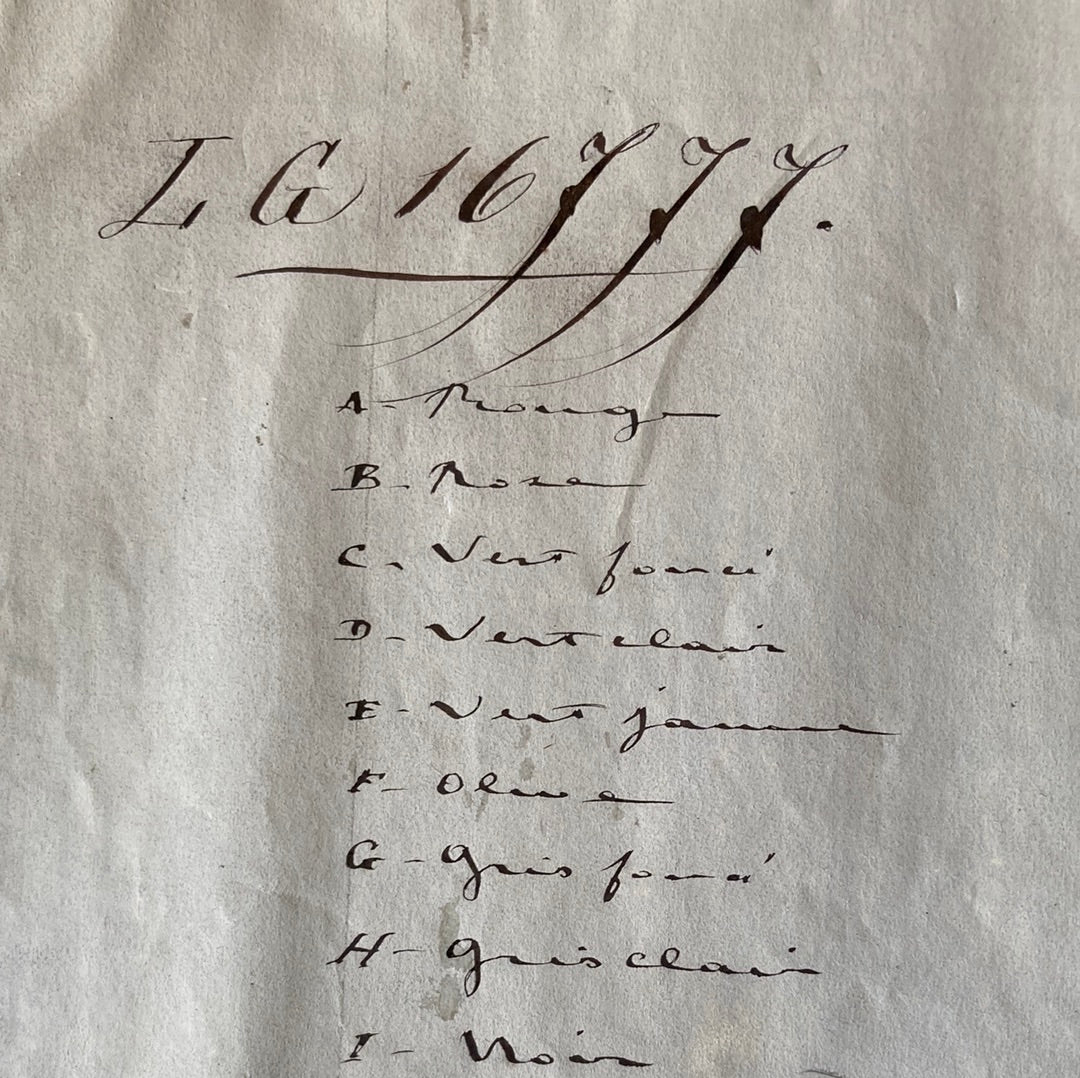 LG 16777.
A - Rouge
B - Rose
C. Vert foncé
D - Vert clair
E - Vert jaune
F - Olive
G - Gris foncé
H - Gris clair
I - Noir